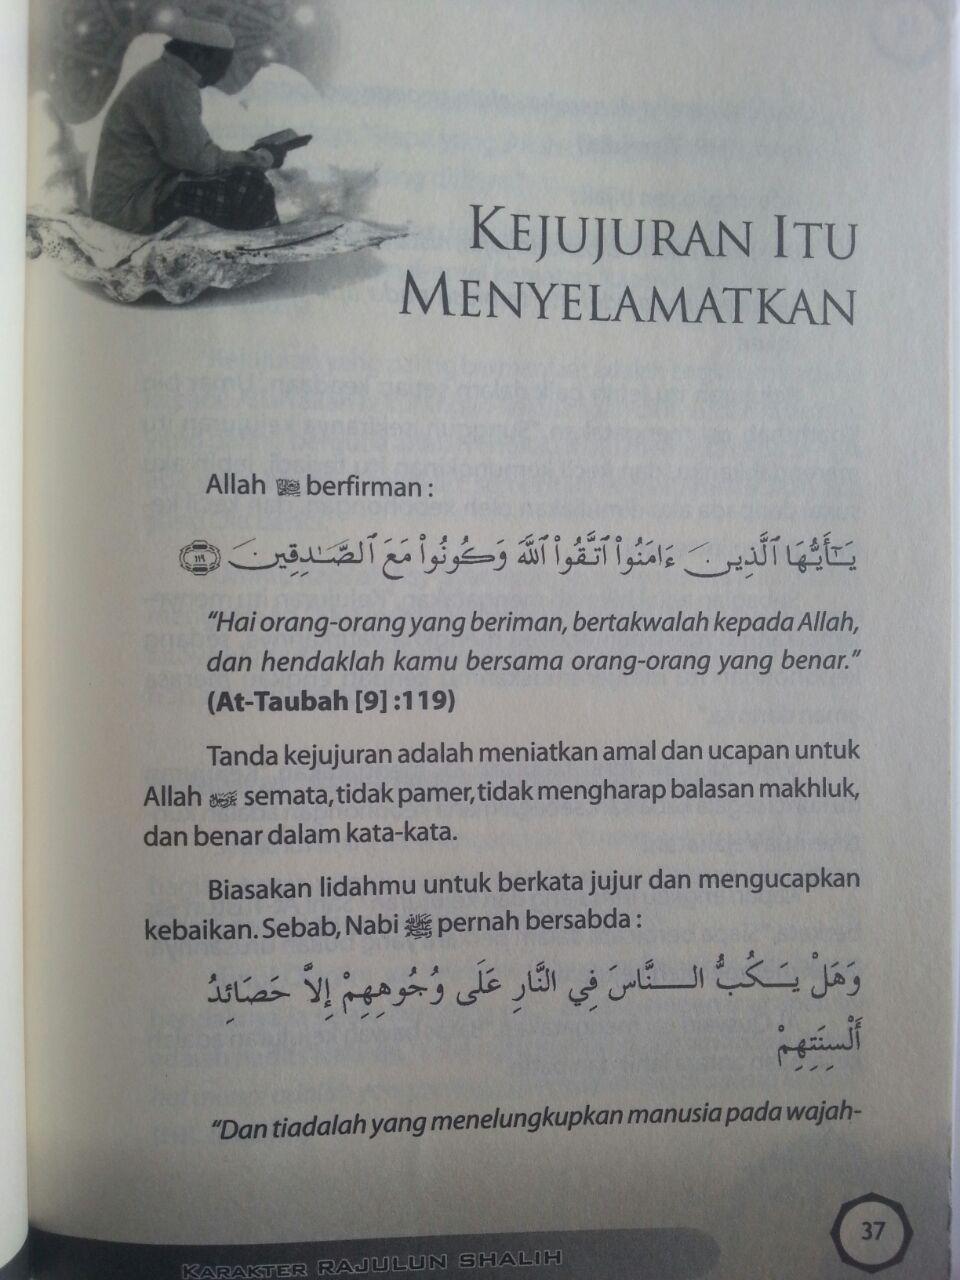 KEJUJURAN ITU
MENYELAMATKAN
Allah ﷻ berfirman :
يَـٰٓأَيُّهَا ٱلَّذِينَ ءَامَنُوا۟ ٱتَّقُوا۟ ٱللَّهَ وَكُونُوا۟ مَعَ ٱلصَّـٰدِقِينَ ١١٩
“Hai orang-orang yang beriman, bertakwalah kepada Allah,
dan hendaklah kamu bersama orang-orang yang benar.”
(At-Taubah [9] :119)
Tanda kejujuran adalah meniatkan amal dan ucapan untuk
Allah semata, tidak pamer, tidak mengharap balasan makhluk,
dan benar dalam kata-kata.
Biasakan lidahmu untuk berkata jujur dan mengucapkan
kebaikan. Sebab, Nabi ﷺ pernah bersabda :
وَهَلْ يَـكُبُّ الـنَّاسَ فِي النَّارِ عَلَى وُجُوهِهِمْ إِلاَّ حَصَائِدُ
أَلْسِنَتِهِمْ
“Dan tiadalah yang menelungkupkan manusia pada wajah-
KARAKTER RAJULUN SHALIH
37